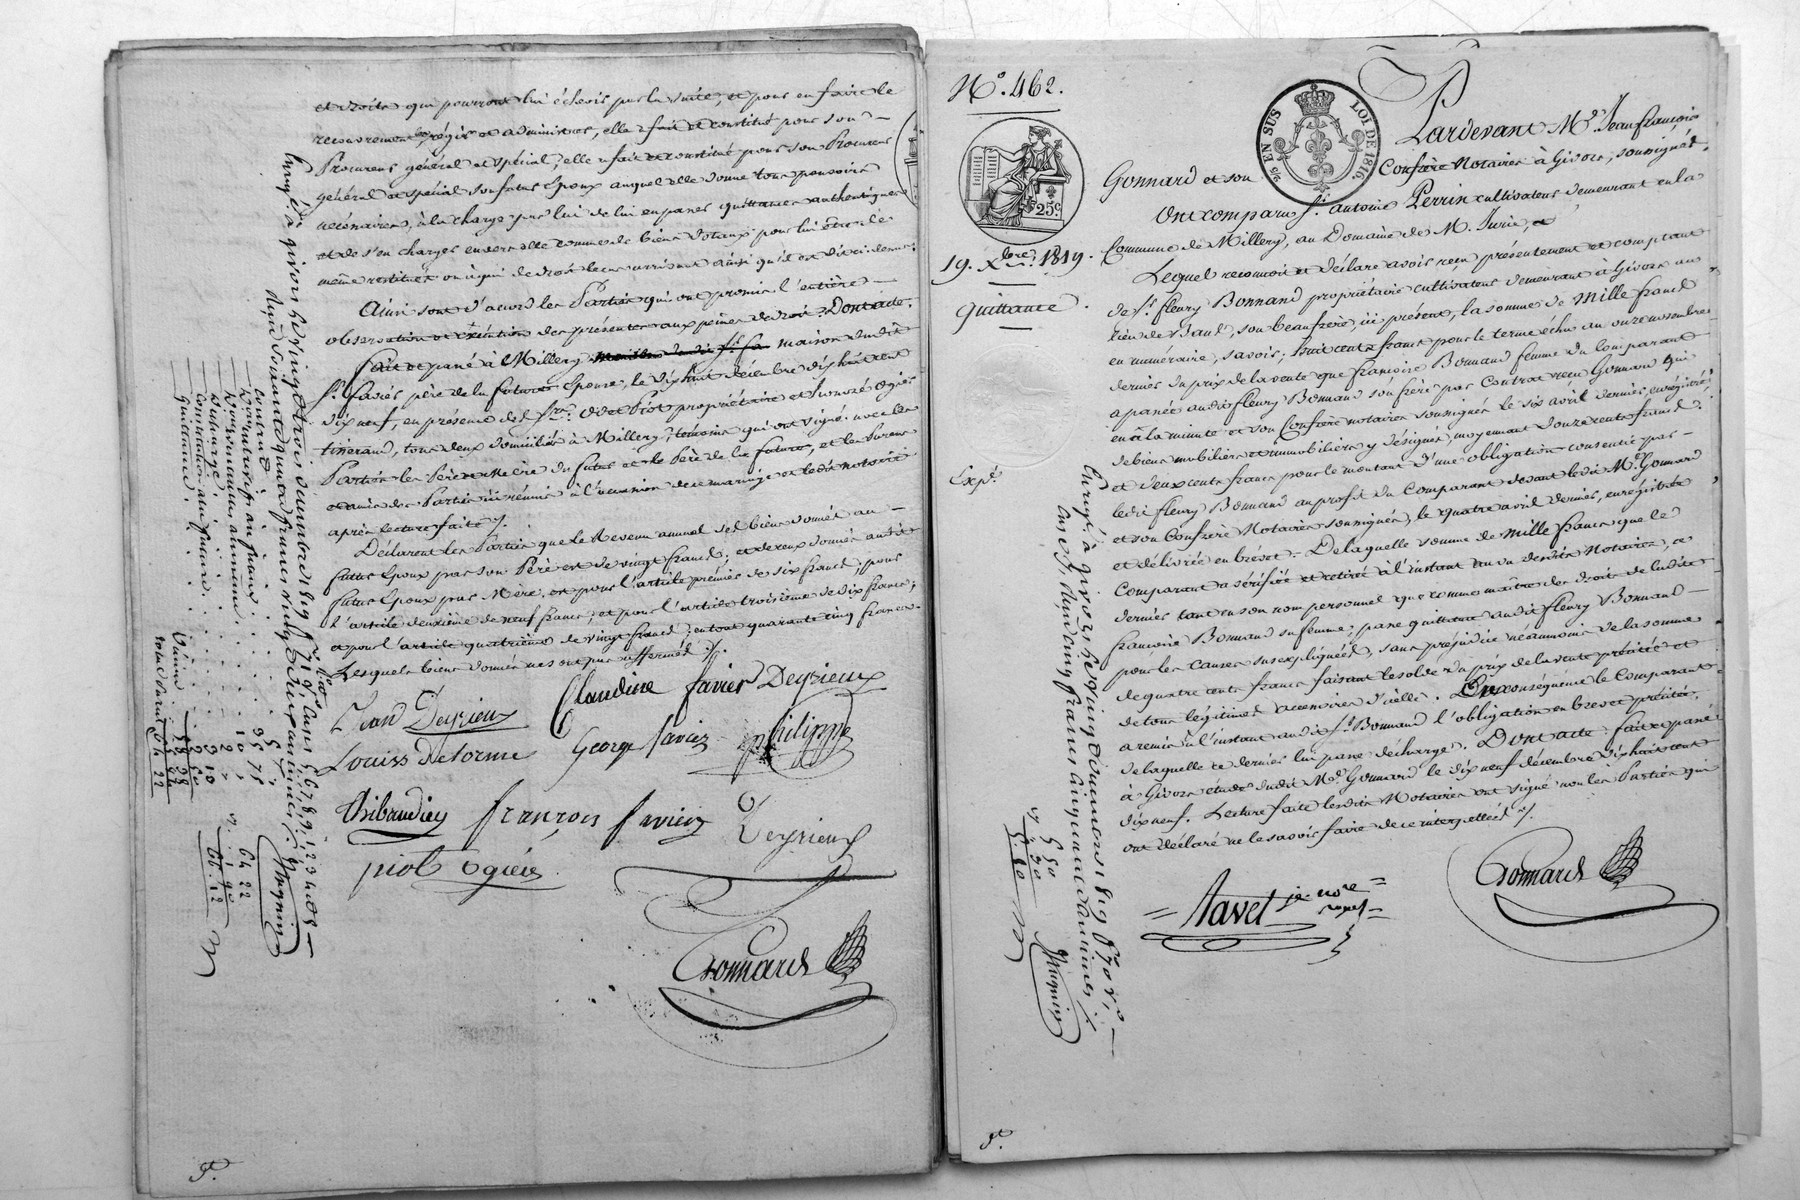 et droits qui pourront lui échoir par la suite, et pour en faire le
recouvrement les régir et administrer, elle a fait et constitué pour son
Procureur général et spécial, elle a fait et constitué pour son Procureur
général et spécial son futur Epoux auquel elle donne tous pouvoirs
nécessaires, à la charge par lui de lui en passer quittances authentiques
et de s'en charger envers elle comme de biens dotaux pour lui être de
même restitués ou à qui de droit le cas arrivant ainsi qu'il est dit ci-dessus.
Ainsi sont d'accord les Parties qui ont promis l'entière
observation et exécution des présentes aux peines de droit. Dont acte.
Fait et passé à Millery maison dudit
Sr. Favier père de la future Epouse, le dix huit décembre dix huit cent
dix neuf, en présence des Srs. Piot propriétaire et honoré Ogier
tisserand, tous deux domiciliés à Millery, témoins qui ont signé avec les
Parties les Père et Mère du futur et le Père de la future, et les Parens
et amis des Parties ici réunis à l'occasion de ce mariage et ledit notaire
après lecture faite ./.
Déclarent les Parties que le Revenu annuel des biens donnés au
futur Epoux par son Père est de vingt francs; et de ceux donnés audit
futur Epoux par sa Mère, est pour l'article premier de six francs, pour
l'article deuxième de neuf francs, et pour l'article troisième de dix francs;
et pour l'article quatrième de vingt francs; en tout quarante cinq francs.
Lesquels biens donnés ne sont pas affermés ./.
Jean Deyrieux Claudine favier Deyrieux
Louiss Delorme George favier philippe
Thibaudier françois favier Deyrieux
piot Ogier
Gonnard
Enrgé. à givors le vingt trois décembre 1819
Contrat
Quittance
Décharge
64 22
N°. 462.
EN SUS
LOI DE 1816.
25c.
19. Xbre. 1819.
Quittance.
Expé.
Pardevant Me. Jean françois
Gonnard et son Confrère Notaires à Givors, soussignés.
Ont comparu Sr. antoine Perrin cultivateur demeurant en la
Commune de Millery, au Domaine de M. Jurie, et
Lequel reconnoit et déclare avoir reçu présentement et comptant
de Sr. fleury Bonnand propriétaire cultivateur demeurant à Givors au
lieu de Bans, son beaufrère, ici présent, la somme de Mille francs
en numéraire, savoir; huit cents francs pour le terme échu au onze novembre
dernier du prix de la vente que françoise Bonnand femme du Comparant
a passée audit fleury Bonnand son frère par Contrat reçu Gonnard qui
en a la minute et son Confrère notaires soussignés le six avril dernier, enregistré,
de biens mobiliers et immobiliers y désignés, moyennant douze cents francs.
et deux cents francs pour le montant d'une obligation consentie par
ledit fleury Bonnand au profit du Comparant devant ledit Me. Gonnard
et son Confrère Notaires soussignés, le quatre avril dernier, enregistrée
et délivrée en brevet. De laquelle somme de Mille francs que le
Comparant a vérifiée et retirée à l'instant au vu desdits Notaires, ce
dernier tant en son nom personnel que comme maître des droits de ladite
françoise Bonnand sa femme, passe quittance audit fleury Bonnand
pour les causes susexpliquées, sans préjudice néanmoins de la somme
de quatre cents francs faisant le solde du prix de la vente précitée et
de tous légitimes accessoires d'icelle. En conséquence le Comparant
a remis à l'instant audit Sr. Bonnand l'obligation en brevet précitée,
de laquelle ce dernier lui passe décharge. Dont acte: fait et passé
à Givors étude dudit Me. Gonnard le dix neuf décembre dix huit cent
dix neuf. Lecture faite lesdits Notaires ont signé non les Parties qui
ont déclaré ne le savoir faire de ce interpellées ./.
Favet Gonnard
Enrgé. à givors le vingt trois décembre 1819
reçu cinq francs cinquante centimes
5 50